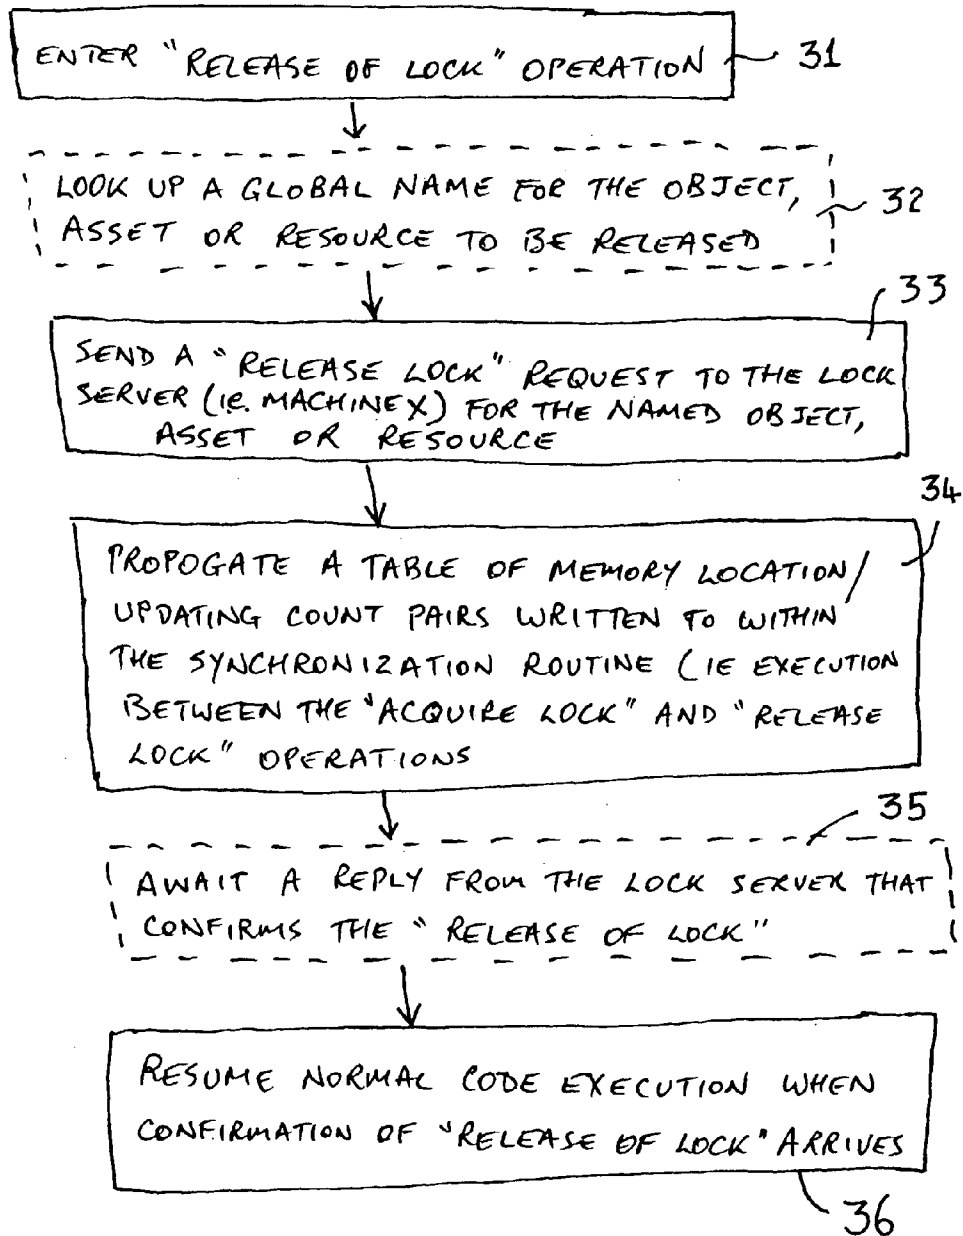 ENTER "RELEASE OF LOCK" OPERATION
31
LOOK UP A GLOBAL NAME FOR THE OBJECT,
ASSET OR RESOURCE TO BE RELEASED
32
33
SEND A "RELEASE LOCK" REQUEST TO THE LOCK
SERVER (IE. MACHINE X) FOR THE NAMED OBJECT,
ASSET OR RESOURCE
34
PROPOGATE A TABLE OF MEMORY LOCATION/
UPDATING COUNT PAIRS WRITTEN TO WITHIN
THE SYNCHRONIZATION ROUTINE (IE EXECUTION
BETWEEN THE "ACQUIRE LOCK" AND "RELEASE
LOCK" OPERATIONS
35
AWAIT A REPLY FROM THE LOCK SERVER THAT
CONFIRMS THE "RELEASE OF LOCK"
RESUME NORMAL CODE EXECUTION WHEN
CONFIRMATION OF "RELEASE OF LOCK" ARRIVES
36